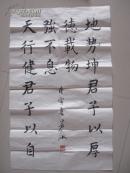 天行健君子以自
强不息
地势坤君子以厚
德载物